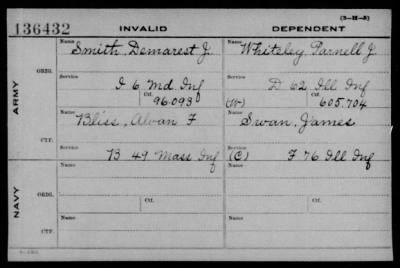 (3-H-5)
136432 INVALID DEPENDENT
ARMY
ORIG.
Name Smith, Demarest J.
Name Whiteley, Parnell J.
Service I 6 Md Inf
Service D 62 Ill Inf
Ctf. 96.093
(W) Ctf. 605,704
CTF.
Name Bliss, Alvan F
Name Swan, James
Service B 49 Mass Inf
Service (C) F 76 Ill Inf
NAVY
ORIG.
Name
Name
Service
Ctf.
Service
Ctf.
CTF.
Name
Name
Service
Service